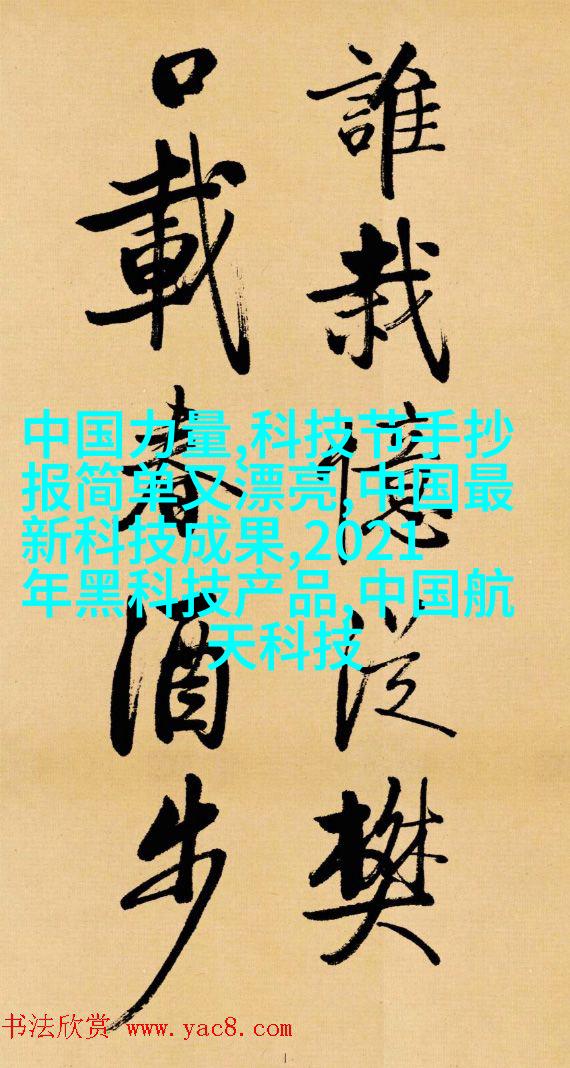 誰栽憶從樊
口載春酒步
中国力量,科技节手抄
报简单又漂亮,中国最
新科技成果,2021
年黑科技产品,中国航
天科技
书法欣赏 www.yac8.com